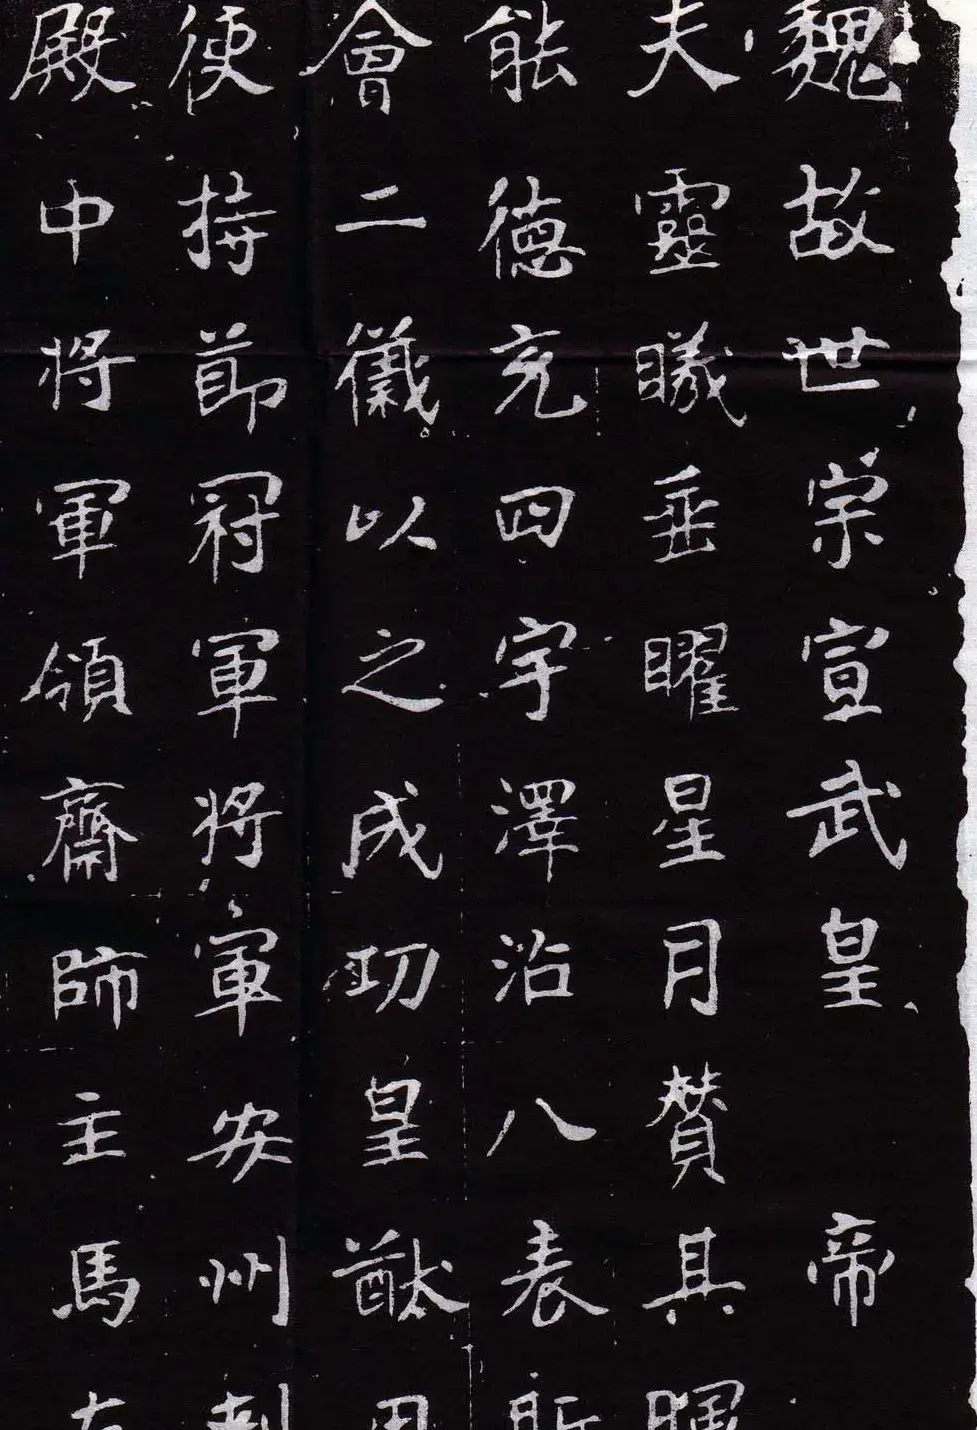 魏故世宗宣武皇帝
夫靈曦垂曜星月贊其暉
能德充四宇澤沿八表所
會二儀以之成功皇猷用
使持節冠軍將軍安州刺
殿中將軍領齋帥主馬左